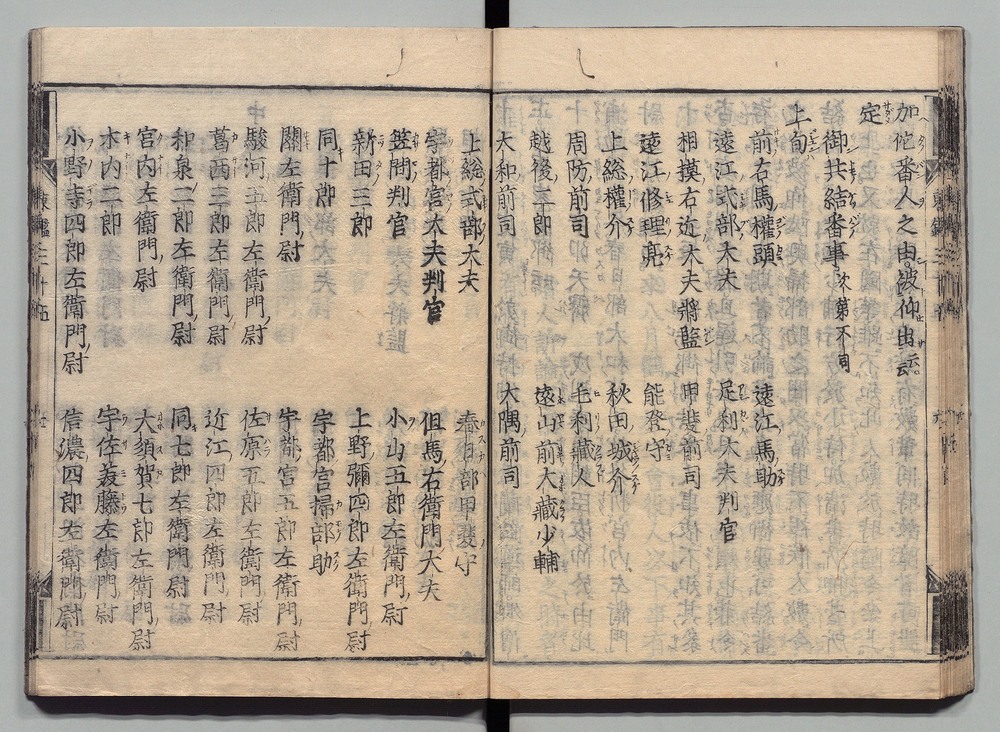 加他番人之由被仰出云云
定
御共結番事次第不同
上旬
前右馬權頭
遠江馬助
遠江式部大夫
足利大夫判官
相摸右近大夫將監
甲斐前司
遠江修理亮
能登守
上総權介
秋田城介
周防前司
毛利藏人
越後三郎
遠山前大藏少輔
大和前司
大隅前司
上総式部大夫
春日部甲斐守
宇都宮大夫判官
但馬右衛門大夫
笠間判官
小山五郎左衛門尉
新田三郎
上野彌四郎左衛門尉
同十郎
宇都宮掃部助
關左衛門尉
宇都宮五郎左衛門尉
駿河五郎左衛門尉
佐原五郎左衛門尉
葛西三郎左衛門尉
近江四郎左衛門尉
和泉二郎左衛門尉
同七郎左衛門尉
宮内左衛門尉
大須賀七郎左衛門尉
木内二郎
宇佐美藤左衛門尉
小野寺四郎左衛門尉
信濃四郎左衛門尉